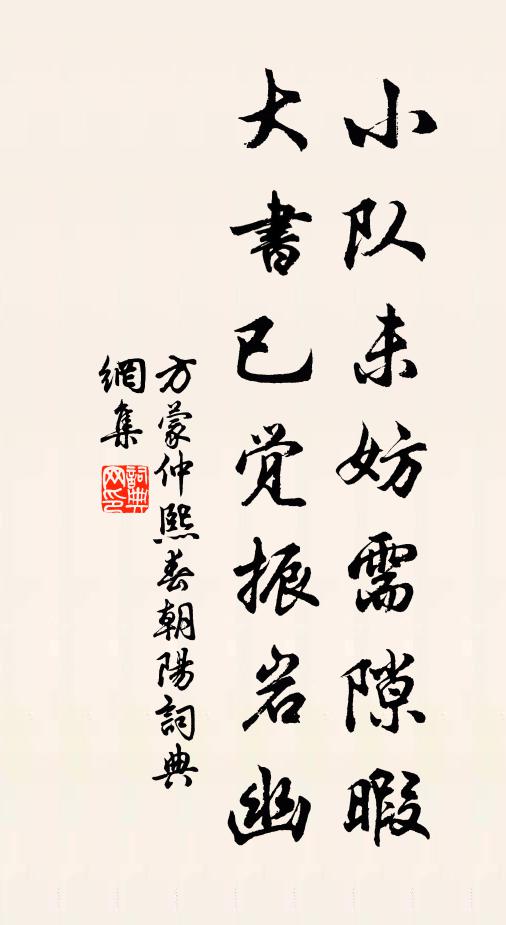 小队未妨需隙暇
大書已觉振岩幽
方蒙仲熙春朝陽詞典
網集
詞典网印